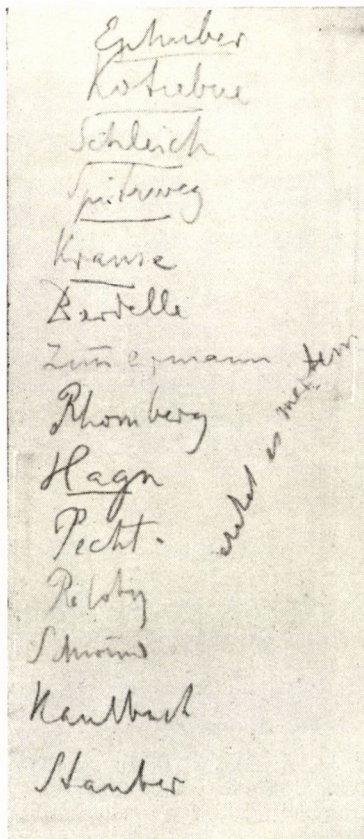 Enhuber
Kotzebue
Schleich
Spitzweg
Krause
Bardelle
Zimmermann
Rhomberg
Hagn
Pecht.
Piloty
Schwind
Kaulbach
Stauber
es